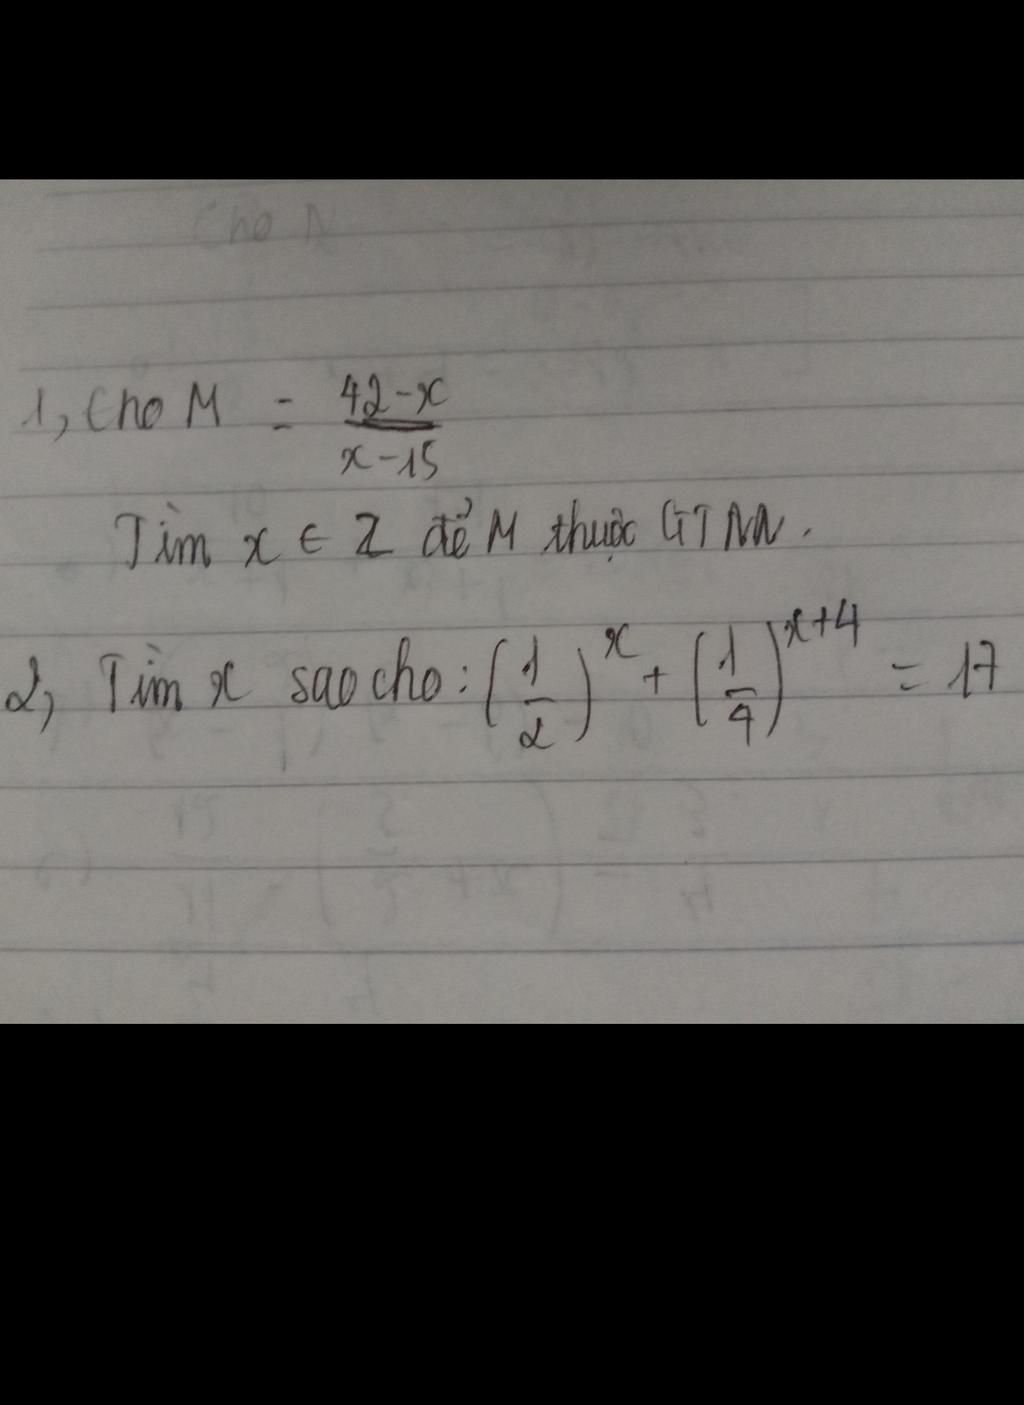 Cho N
1, Cho M = \frac{42-x}{x-15}
Tìm x ∈ Z để M thuộc GTNN.
2, Tìm x sao cho: (\frac{1}{2})^{x} + (\frac{1}{4})^{x+4} = 17